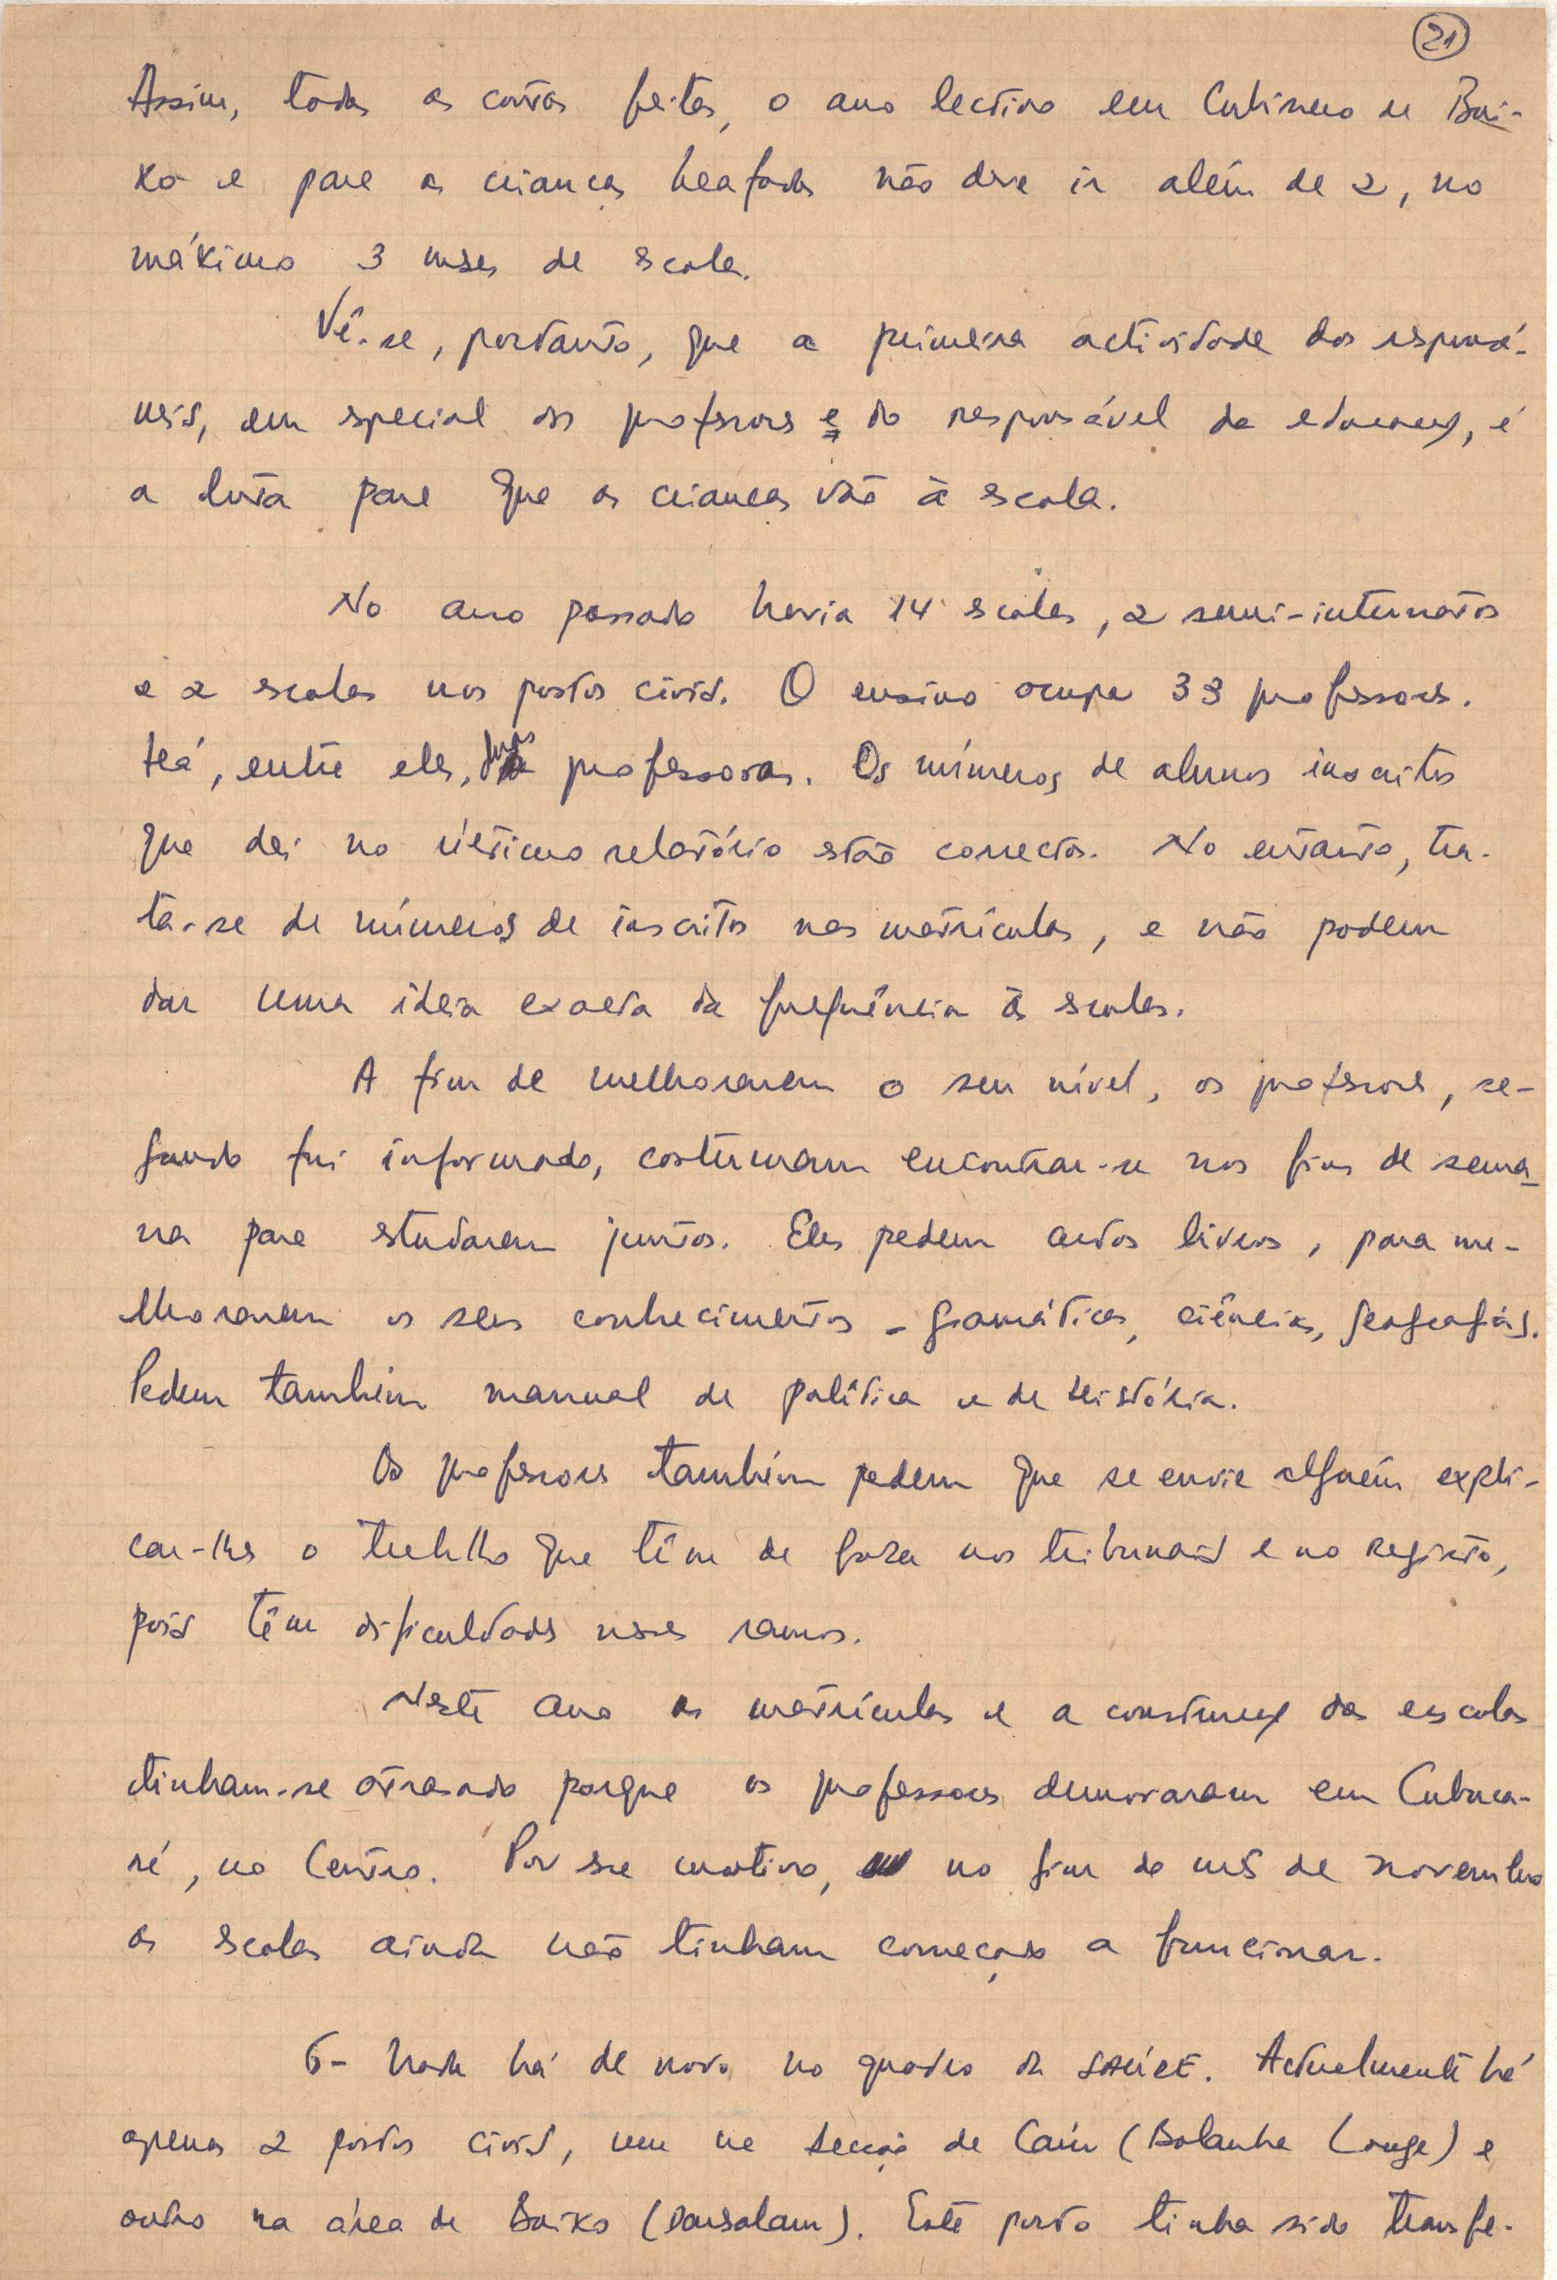 21
Assim, todas as contas feitas, o ano lectivo em Cubisseco de Bai-
xo e para as crianças beafadas não deve ir além de 2, no
máximo 3 meses de escola.
Vê-se, portanto, que a primeira actividade dos responsá-
veis, em especial dos professores e do responsável da educação, é
a luta para que as crianças vão à escola.
No ano passado havia 14 escolas, 2 semi-internatos
e 2 escolas nos postos civis. O ensino ocupa 33 professores.
Há, entre eles, professoras. Os números de alunos inscritos
que dei no último relatório estão correctos. No entanto, tra-
ta-se de números de inscritos nas matrículas, e não podem
dar uma ideia exacta da frequência às escolas.
A fim de melhorarem o seu nível, os professores, se-
gundo fui informado, costumam encontrar-se nos fins de sema-
na para estudarem juntos. Eles pedem certos livros, para me-
lhorarem os seus conhecimentos - gramáticas, ciências, geografias.
Pedem também manual de política e de História.
Os professores também pedem que se envie alguém expli-
car-lhes o trabalho que têm de fazer nos tribunais e no registo,
pois têm dificuldades nesses ramos.
Neste ano as matrículas e a construção das escolas
tinham-se atrasado porque os professores demoraram em Cubuca-
ré, no Centro. Por esse motivo, no fim do mês de novembro
as escolas ainda não tinham começado a funcionar.
6- Nada há de novo no quadro da SAÚDE. Actualmente há
apenas 2 postos civis, um na secção de Caür (Bolanha Longe) e
outro na área de Baixo (Darsalam). Este posto tinha sido transfe-